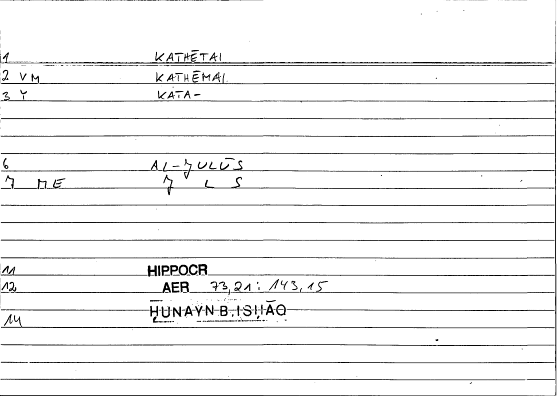 1 KATHĒTAI
2 VM KATHĒMAI
3 Y KATA-
6 AL-JULŪS
7 ME J L S
11 HIPPOCR
12 AER 73,21: 143,15
14 ḤUNAYN B. ISḤĀQ